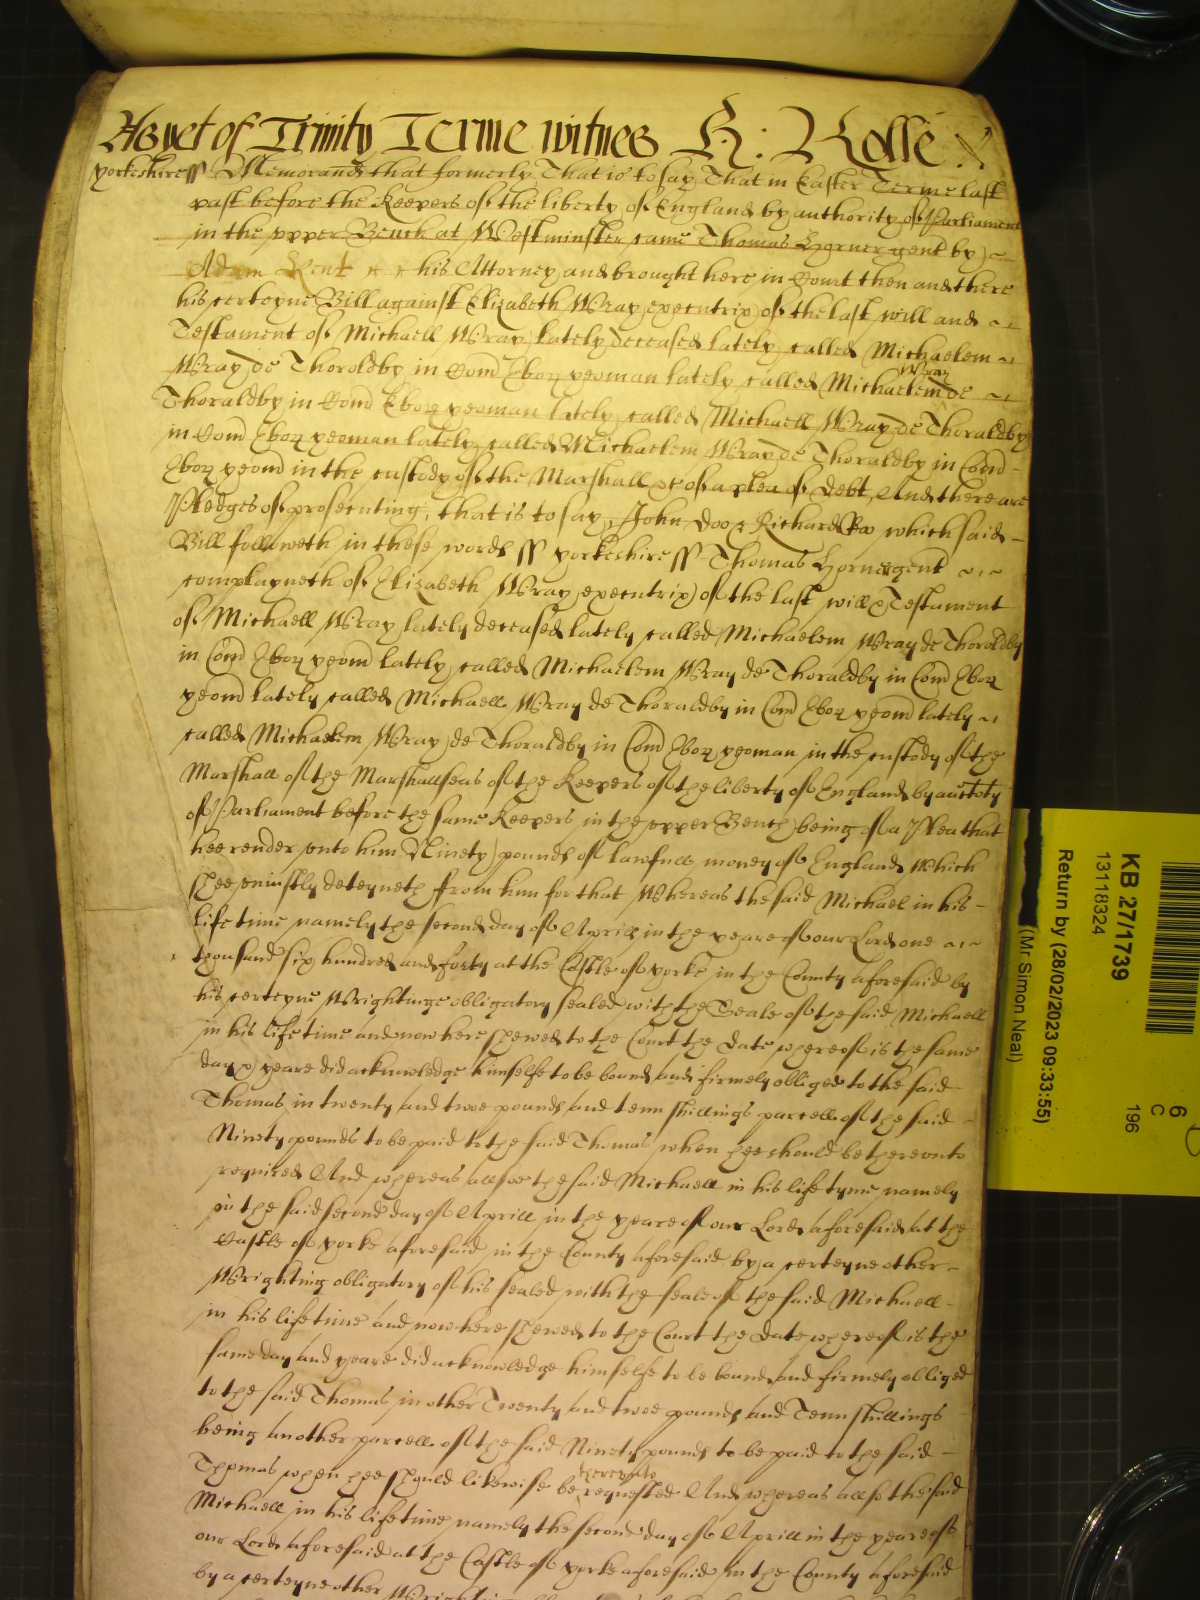 As yet of Trinity Terme witnes H: Rolle
yorkeshire ss Memorand that formerly That is to say That in Easter Terme last
past before the Keepers of the liberty of England by authority of Parliament
in the upper Bench at Westminster came Thomas Horner gent by
Adam Kent his Attorney and brought here in Court then and there
his certeyne Bill against Elizabeth Wray executrix of the last will and
Testament of Michaell Wray lately deceased lately called Michaelem
Wray de Thoroldby in Com Ebor yeoman lately called Michaelem Wray de
Thoraldby in Com Ebor yeoman lately called Michaell Wray de Thoraldby
in Com Ebor yeoman lately called Michaelem Wray de Thoraldby in Com
Ebor yeom in the custody of the Marshall &c of a plea of Debt, And there are
Pledges of prosecuting, that is to say, John Doo & Richard Roo which said
Bill followeth in these words ss yorkeshire ss Thomas Horner gent
complayneth of Elizabeth Wray executrix of the last will & Testament
of Michaell Wray lately deceased lately called Michaelem Wray de Thoroldby
in Com Ebor yeom lately called Michaelem Wray de Thoraldby in Com Ebor
yeom lately called Michaell Wray de Thoraldby in Com Ebor yeom lately
called Michaelem Wray de Thoraldby in Com Ebor yeoman in the custody of the
Marshall of the Marshallseas of the Keepers of the liberty of England by auctoty
of Parliament before the same Keepers in the upper Bench being of a Plea that
hee render unto him Ninety pounds of lawfull money of England which
shee uniustly deteyneth from him for that Whereas the said Michael in his
life time namely the second day of Aprill in the yeare of our Lord one
thousand six hundred and forty at the Castle of yorke in the County aforesaid by
his certeyne Wrightinge obligatory sealed with the Seale of the said Michaell
in his life time and now here shewed to the Court the Date whereof is the same
day & yeare did acknowledge himselfe to be bound and firmely obliged to the said
Thomas in twenty and twoe pounds and tenn shillings parcell of the said
Ninety pounds to be paid to the said Thomas when hee should be thereunto
required And whereas allsoe the said Michaell in his life tyme namely
in the said second day of Aprill in the yeare of our Lord aforesaid at the
Castle of yorke aforesaid in the County aforesaid by a certeyne other
Wrighting obligatory of his sealed with the seale of the said Michaell
in his life time and now here shewed to the Court the Date whereof is the
same day and yeare did acknowledge himselfe to be bound and firmely obliged
to the said Thomas in other Twenty and twoe pounds and Tenn shillings
being another parcell of the said Ninety pounds to be paid to the said
Thomas when hee should likewise be hereunto requested And whereas allso the said
Michaell in his life time namely the second day of Aprill in the yeare of
our Lord aforesaid at the Castle of yorke aforesaid in the County aforesaid
by a certeyne other
KB 27/1739
13118324
Return by (28/02/2023 09:33:55)
(Mr Simon Neal)
6
C
196